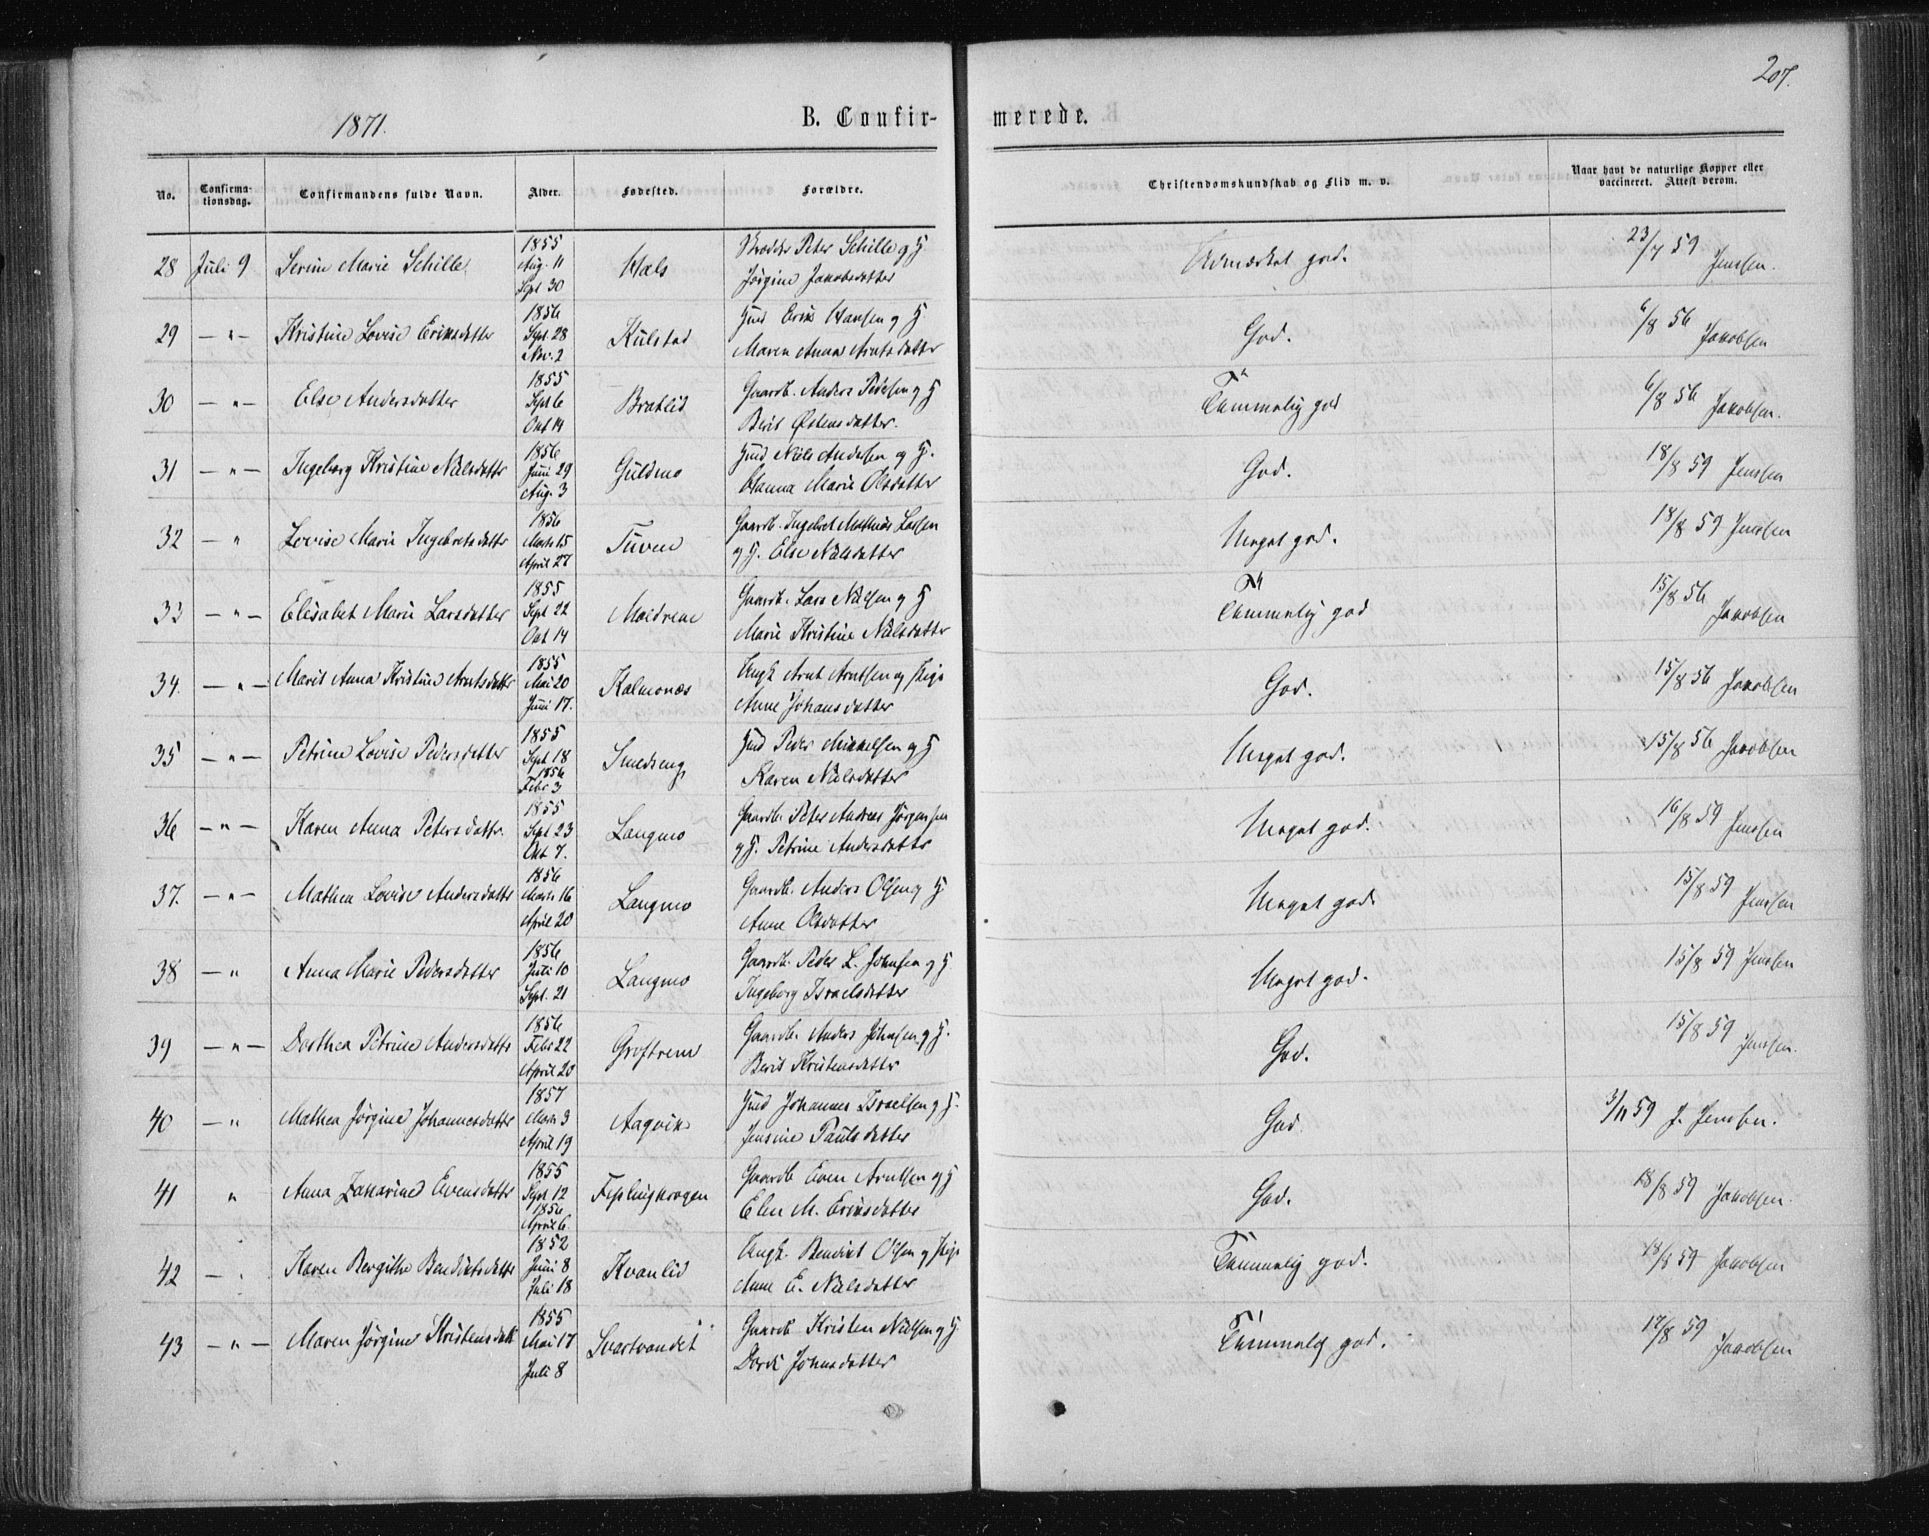 207.
1871.
B. Confir-
merede.
No.
Confirma-
tionsdag.
Confirmandens fulde Navn.
Alder.
Fødested.
Forældre.
Christendomskundskab og Flid m. v.
Naar havt de naturlige Kopper eller
vaccineret. Attest derom.
28 Juli 9 Serine Marie Schille 1855 Aug. 11 Sept 30 Hals Peter Schille og H. Jørgine Jakobsdatter Udmærket god. 23/7 59 Jenssen.
29 — " — Kristine Lovise Eriksdatter 1856 Sept. 28 Nov. 2 Kulstad Erik Hansen og H. Maren Anna Arntsdatter God. 6/8 56 Jakobsen
30 — " — Else Andersdatter 1855 Sept 6 Okt 14 Bratlid Gaardb. Anders Pedersen og H. Berit Østensdatter. Temmelig god 6/8 56 Jakobsen.
31 — " — Ingeborg Kristine Nielsdattr 1856 Juni 29 Aug. 3 Guldmo Niels Andersen og H. Hanna Marie Olsdatter God. 18/8 59 Jenssen
32 — " Lovise Marie Ingebretsdattr 1856 Marts 15 April 27 Tuven Gaardb. Ingebret Mathias Larsen og H. Else Nielsdatter Meget god. 18/8 59 Jenssen
33 — " — Elisabet Marie Larsdatter 1855 Sept 22 Okt 14 Gaardb. Lars Nielsen og H. Marie Kristine Nielsdatter Temmelig god 15/8 56 Jakobsen
34. — " — Marit Anna Kristine Arntsdattr 1855 Mai 20 Juni 17. Kalmonæs Ungk. Arnt Arntsen og Pige Anne Johansdatter God. 15/8 56 Jakobsen
35 — " — Petrine Lovise Pedersdatter 1855 Sept 18 1856 Febr 3 Smedseng Peder Mikkelsen og H. Karen Nielsdatter Meget god. 15/8 56 Jakobsen
36 — " — Karen Anna Petersdattr. 1855 Sept 23 Okt 7. Langmo Gaardb. Peter Andreas Jørgensen og H. Petrine Andersdattr Meget god. 16/8 59 Jenssen
37. — " — Mathea Lovise Andersdattr 1856 Marts 16 April 20 Langmo Gaardb. Anders Olsen og H. Anne Olsdatter Meget god. 15/8 59 Jenssen
38 — " Anna Marie Pedersdatter 1856 Juli 10 Sept. 21 Langmo Gaardb. Peder L. Johnsen og H. Ingeborg Israelsdatter Meget god. 15/8 59 Jenssen
39 — " — Dorthea Petrine Andersdattr 1856 Febr 22 April 20 Groftrem Gaardb. Anders Johnsen og H. Berit Kristensdattr God. 15/8 59 Jenssen.
40 — " Mathea Jørgine Johannesdatter 1857 Marts 3 April 19 Aagvik Johannes Israelsen og H. Jensine Paulsdatter God 3/11 59 J. Jenssen.
41 " Anna Zakarine Evensdattr 1855 Sept 12 1856 April 6. Feplingkrogen Gaardb Even Arntsen og H. Elen M. Eriksdatter God. 18/8 59 Jakobsen
42 — " Karen Bergithe Benediktsdattr 1852 Juni 8 Juli 18 Kvanlid Ungk. Benedikt Olsen og Pige Anne E. Nielsdatter Temmelig god. 18/8 59 Jakobsen
43 — " — Maren Jørgine Kristensdatt 1855 Mai 17 Juli 8 Svartvandet Gaardb. Kristen Nielsen og H. Dordi Johnsdatter Temmelig god. 17/8 59 Jakobsen